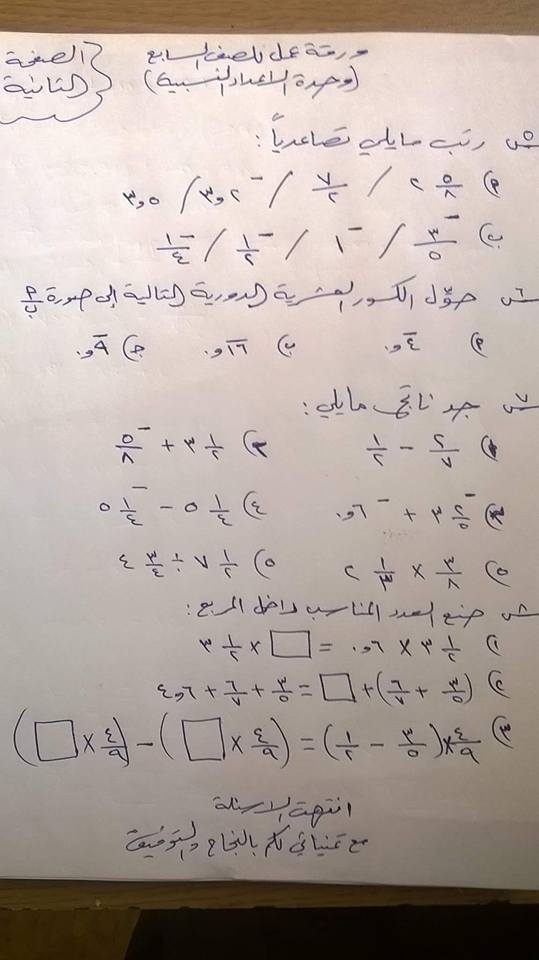 ورقة عمل للصف السابع
(وحدة الأعداد النسبية)
الصفحة الثانية
س٥ رتب مايلي تصاعدياً :
أ) ٢ ٥/٨ / ٧/٢ / ٣,٢- / ٣,٥
ب) ٣/٥- / ١- / ١/٢- / ١/٤-
س٦ حوّل الكسور العشرية الدورية التالية إلى صورة أ/ب
أ) ٠,٤̅ ب) ٠,١٦̅ ج) ٠,٩̅
س٧ جد ناتج مايلي :
١) ٢/٧ - ١/٢ ٢) ٣ ١/٢ + ٥/٨-
٣) ٣ ٢/٥- + ٠,٦- ٤) ٥ ١/٤ - ٥ ١/٤-
٥) ٣/٨ × ٢ ١/٣ ٥) ٧ ١/٢ ÷ ٤ ٣/٤
س٨ ضع العدد المناسب داخل المربع :
١) ٣ ١/٢ × ٠,٦ = □ × ٣ ١/٢
٢) (٣/٥ + ٦/٧) + □ = ٣/٥ + ٦/٧ + ٤,٦
٣) ٤/٩ × (٣/٥ - ١/٢) = (٤/٩ × □) - (٤/٩ × □)
انتهت الاسئلة
مع تمنياتي لكم بالنجاح والتوفيق